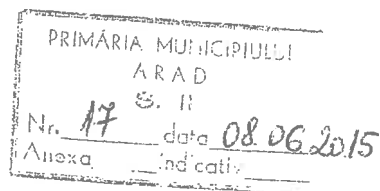 PRIMĂRIA MUNICIPIULUI
ARAD
S. II
Nr. 17 data 08.06.2015
Anexa indicativ